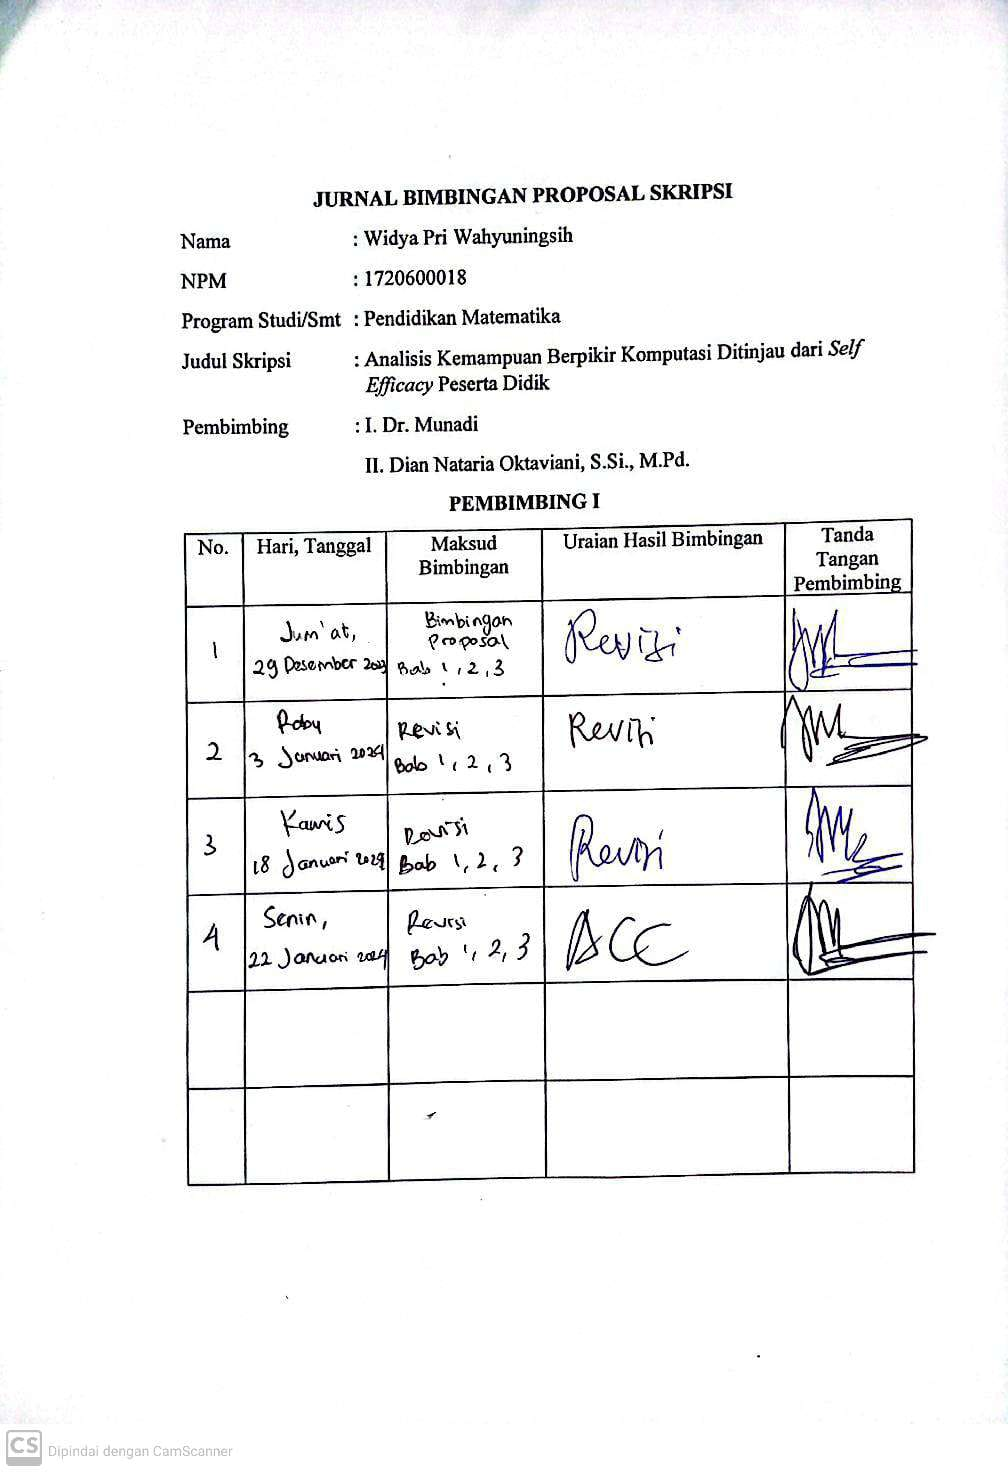 JURNAL BIMBINGAN PROPOSAL SKRIPSI
Nama : Widya Pri Wahyuningsih
NPM : 1720600018
Program Studi/Smt : Pendidikan Matematika
Judul Skripsi : Analisis Kemampuan Berpikir Komputasi Ditinjau dari Self
Efficacy Peserta Didik
Pembimbing : I. Dr. Munadi
II. Dian Nataria Oktaviani, S.Si., M.Pd.
PEMBIMBING I
No. Hari, Tanggal Maksud Bimbingan Uraian Hasil Bimbingan Tanda Tangan Pembimbing
1 Jum'at, 29 Desember Bimbingan Proposal Bab 1, 2, 3 Revisi
2 Rabu 3 Januari 2024 Revisi Bab 1, 2, 3 Revisi
3 Kamis 18 Januari 2024 Revisi Bab 1, 2, 3 Revisi
4 Senin, 22 Januari 2024 Revisi Bab 1, 2, 3 ACC
CS Dipindai dengan CamScanner